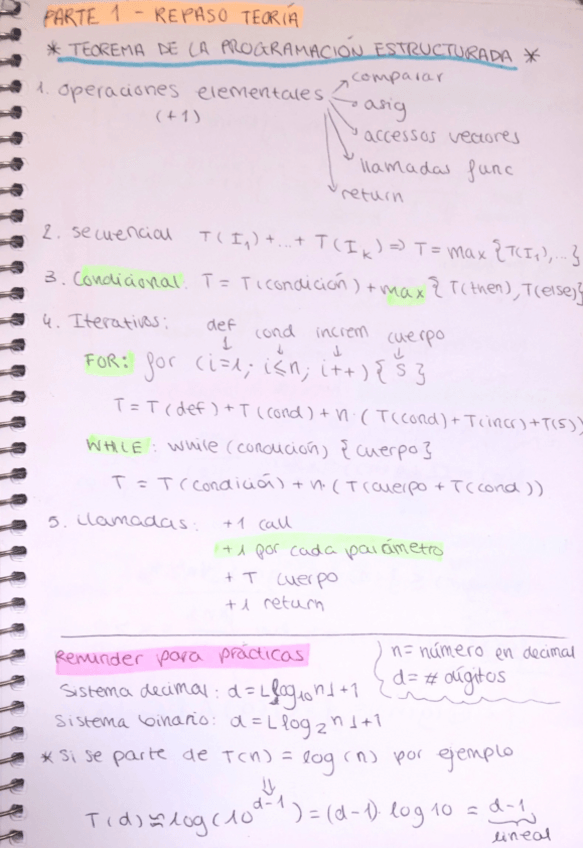 PARTE 1 - REPASO TEORÍA
* TEOREMA DE LA PROGRAMACIÓN ESTRUCTURADA *
1. operaciones elementales → comparar
(+1) → asig
→ accessos vectores
→ llamadas func
→ return
2. secuencial T(I₁)+...+ T(Iₖ) => T = max {T(I₁),...}
3. Condicional: T = T(condición) + max { T(then), T(else)}
4. Iterativos: def cond increm cuerpo
↓ ↓ ↓ ↓
FOR: for (i=1; i≤n; i++) { S }
T = T(def) + T(cond) + n · (T(cond) + T(incr) + T(S))
WHILE: while (condición) {cuerpo}
T = T(condición) + n · (T(cuerpo + T(cond))
5. Llamadas: +1 call
+1 por cada parámetro
+ T cuerpo
+1 return
Reminder para prácticas
n = número en decimal
d = # dígitos
Sistema decimal: d = ⌊log₁₀ n⌋ + 1
Sistema binario: d = ⌊log₂ n⌋ + 1
* Si se parte de T(n) = log(n) por ejemplo
⇓
T(d) ≈ log(10^(d-1)) = (d-1) · log 10 = d-1
lineal